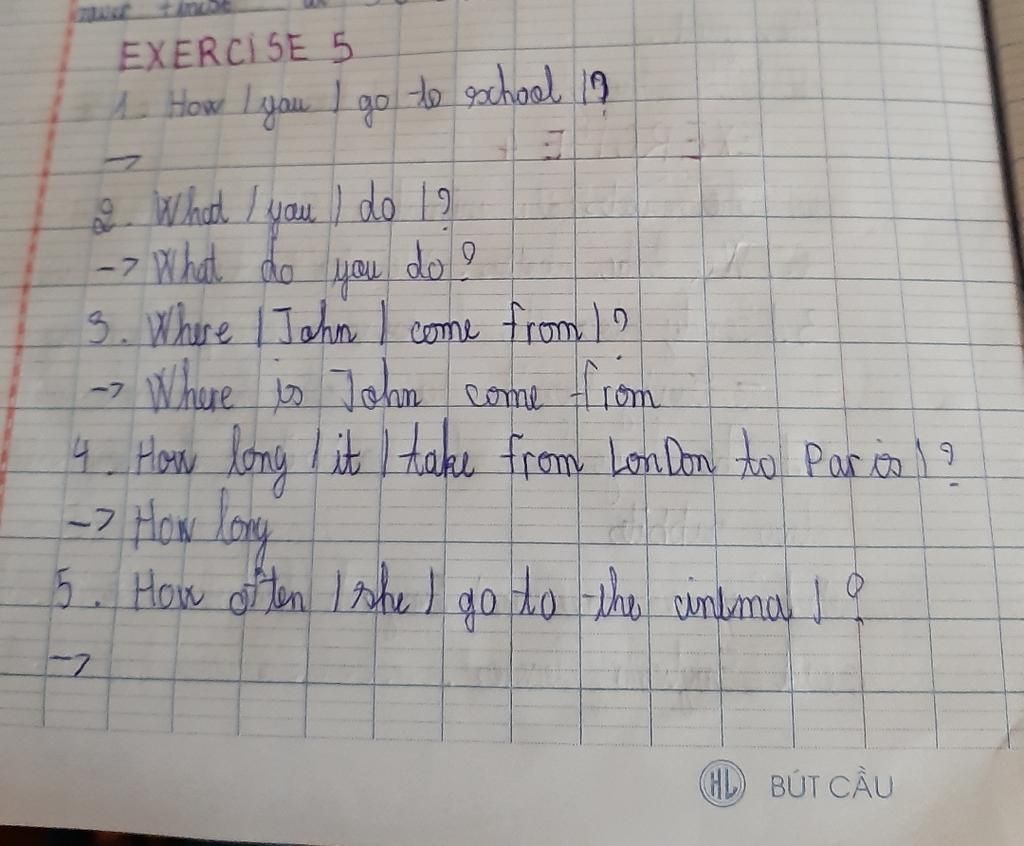 EXERCISE 5
1. How / you / go to school / ?
->
2. What / you / do / ?
-> What do you do?
3. Where / John / come from / ?
-> Where is John come from
4. How long / it / take from LonDon to Paris / ?
-> How long
5. How often / she / go to the cinema / ?
->
HL BÚT CẦU